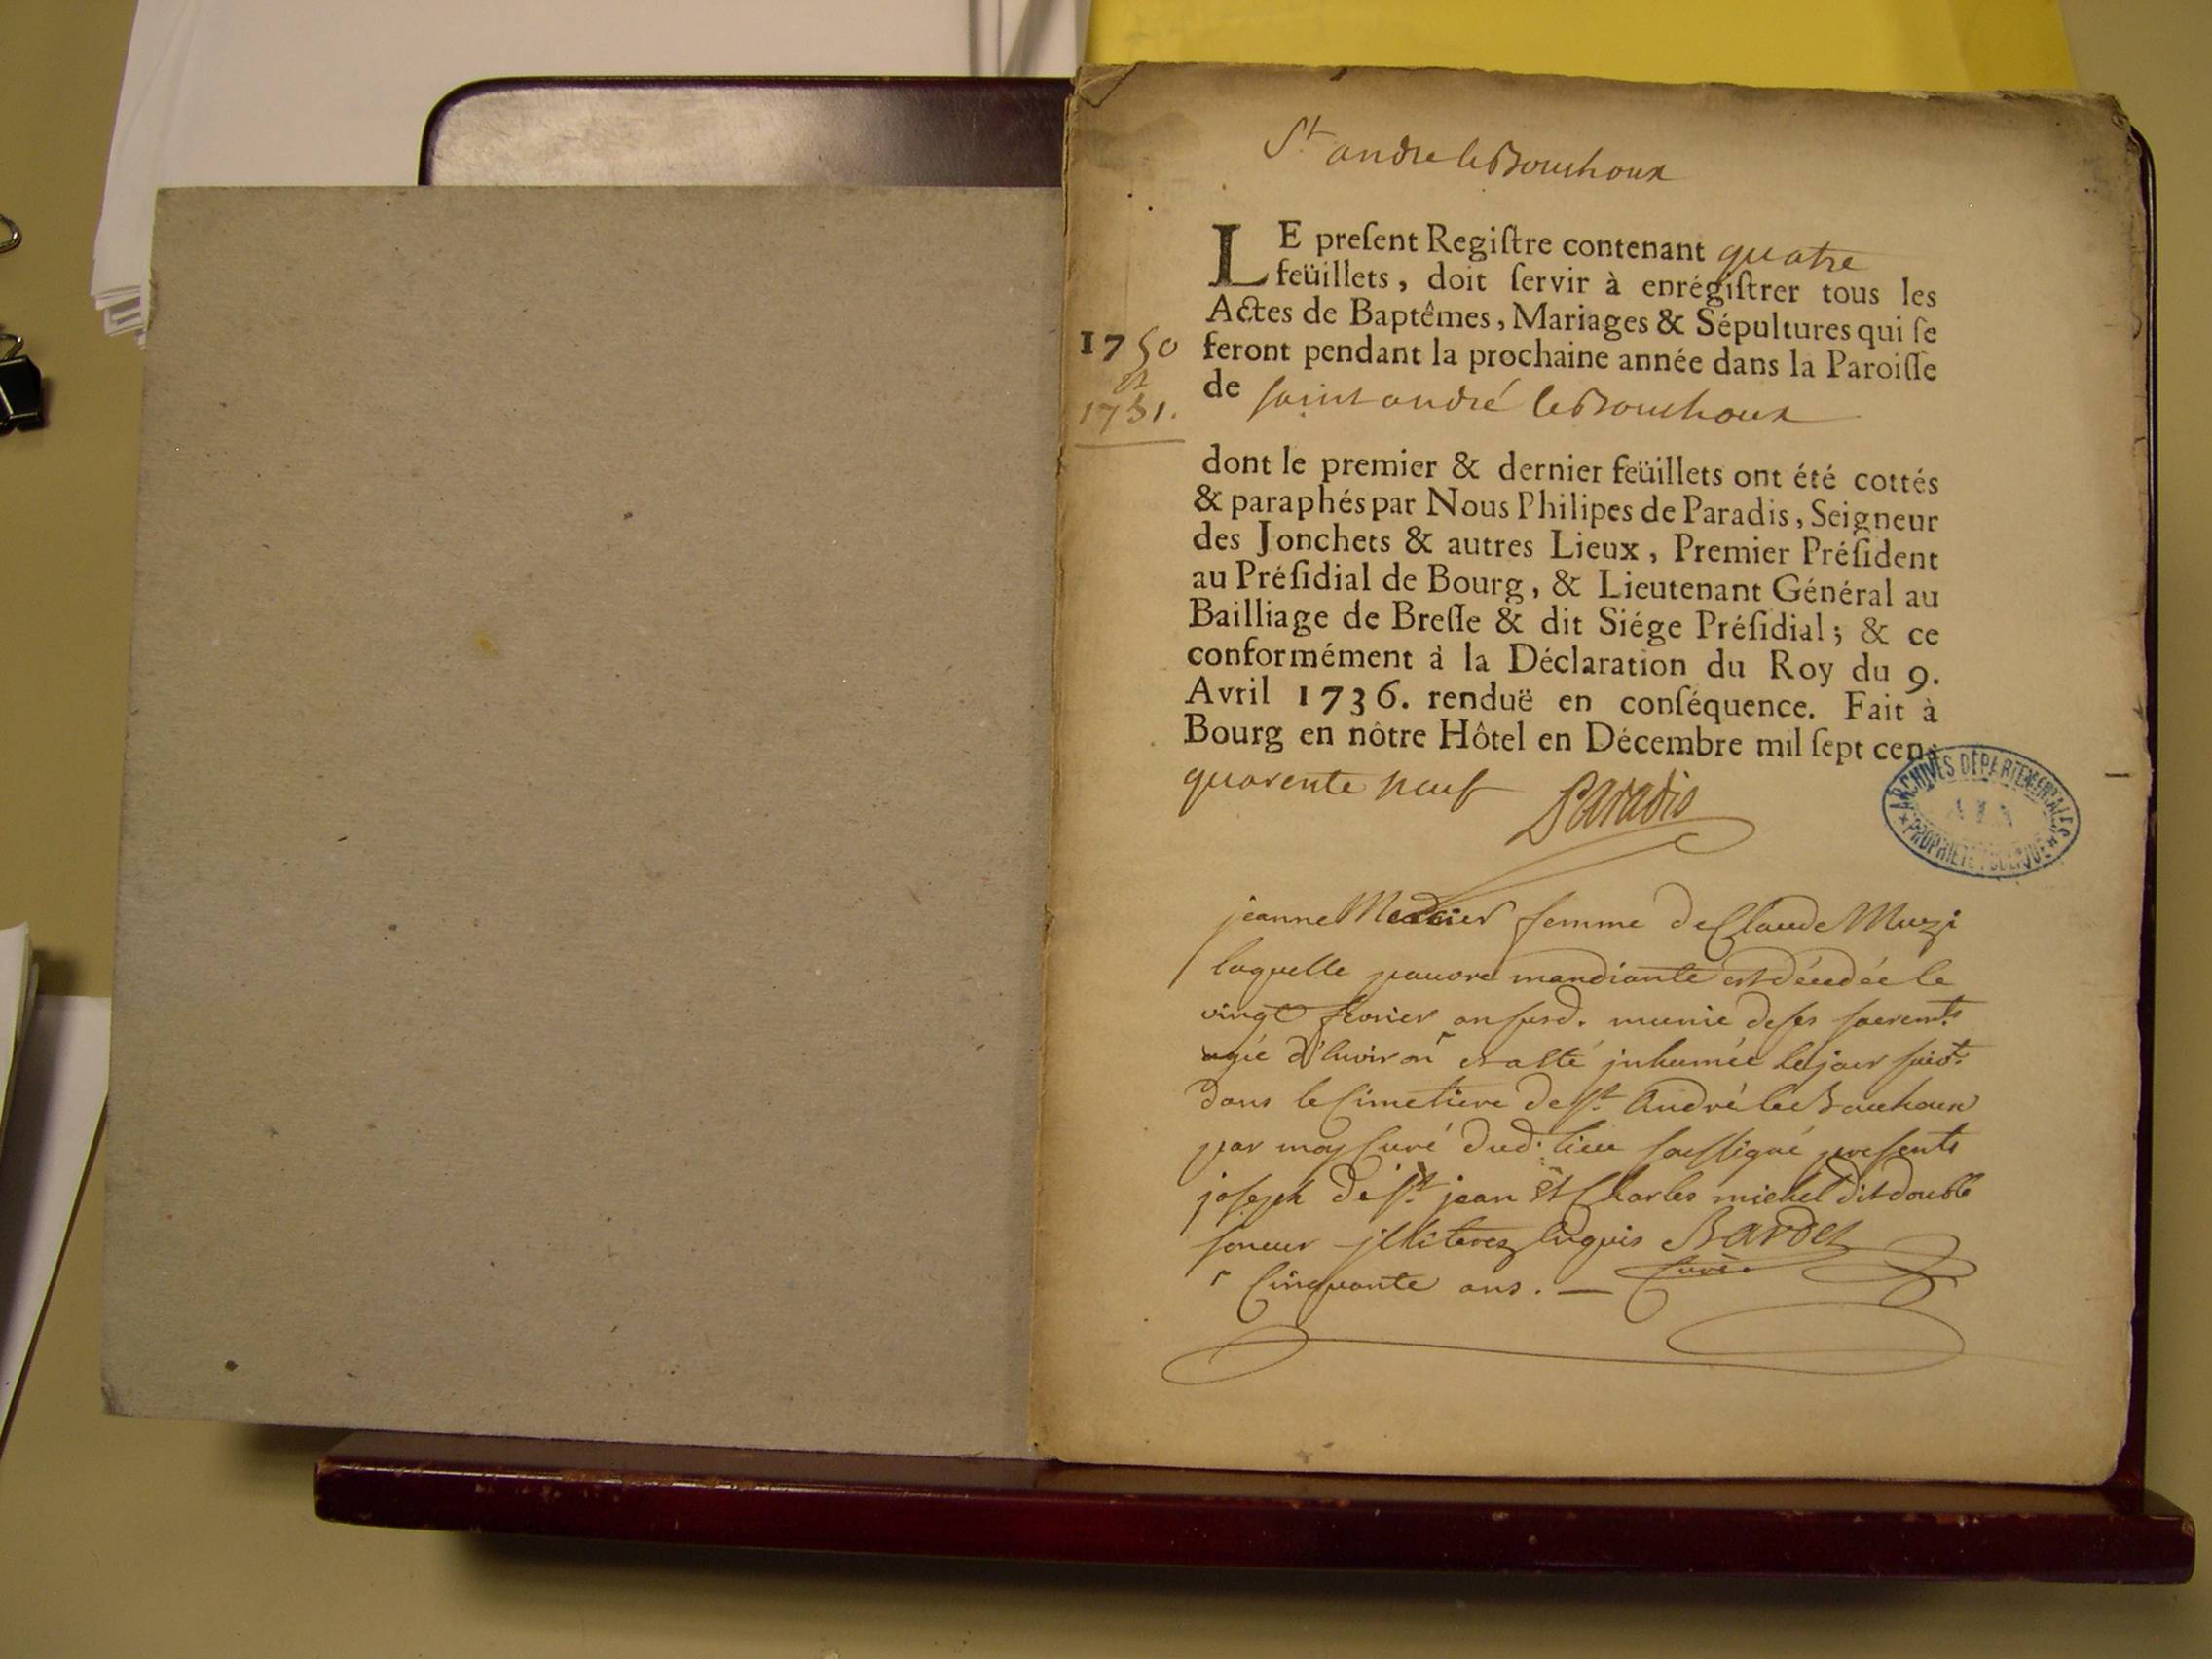 St andre le Bouchoux
LE preſent Regiſtre contenant quatre
feüillets, doit ſervir à enrégiſtrer tous les
Actes de Baptêmes, Mariages & Sépultures qui ſe
1750 feront pendant la prochaine année dans la Paroiſſe
et
1751.
de saint andré le Bouchoux
dont le premier & dernier feüillets ont été cottés
& paraphés par Nous Philipes de Paradis, Seigneur
des Jonchets & autres Lieux, Premier Préſident
au Préſidial de Bourg, & Lieutenant Général au
Bailliage de Breſſe & dit Siége Préſidial; & ce
conformément à la Déclaration du Roy du 9.
Avril 1736. renduë en conſéquence. Fait à
Bourg en nôtre Hôtel en Décembre mil ſept cen
quarente neuf Paradis
ARCHIVES DÉPARTEMENTALES
AIN
PROPRIÉTÉ PUBLIQUE
jeanne femme de Claude Muzi
laquelle pauvre mandiante est décédée le
vingt fevrier an susd. munie de ses sacremts
agée d'environ et a esté inhumée le jour suivt.
dans le Cimetiere de St. André le Bouchoux
par moy Curé dud. lieu soussigné presents
joseph de St. jean Et Charles michel dit double
soneur illiterez enquis Bardet
Cinquante ans. — Curé.